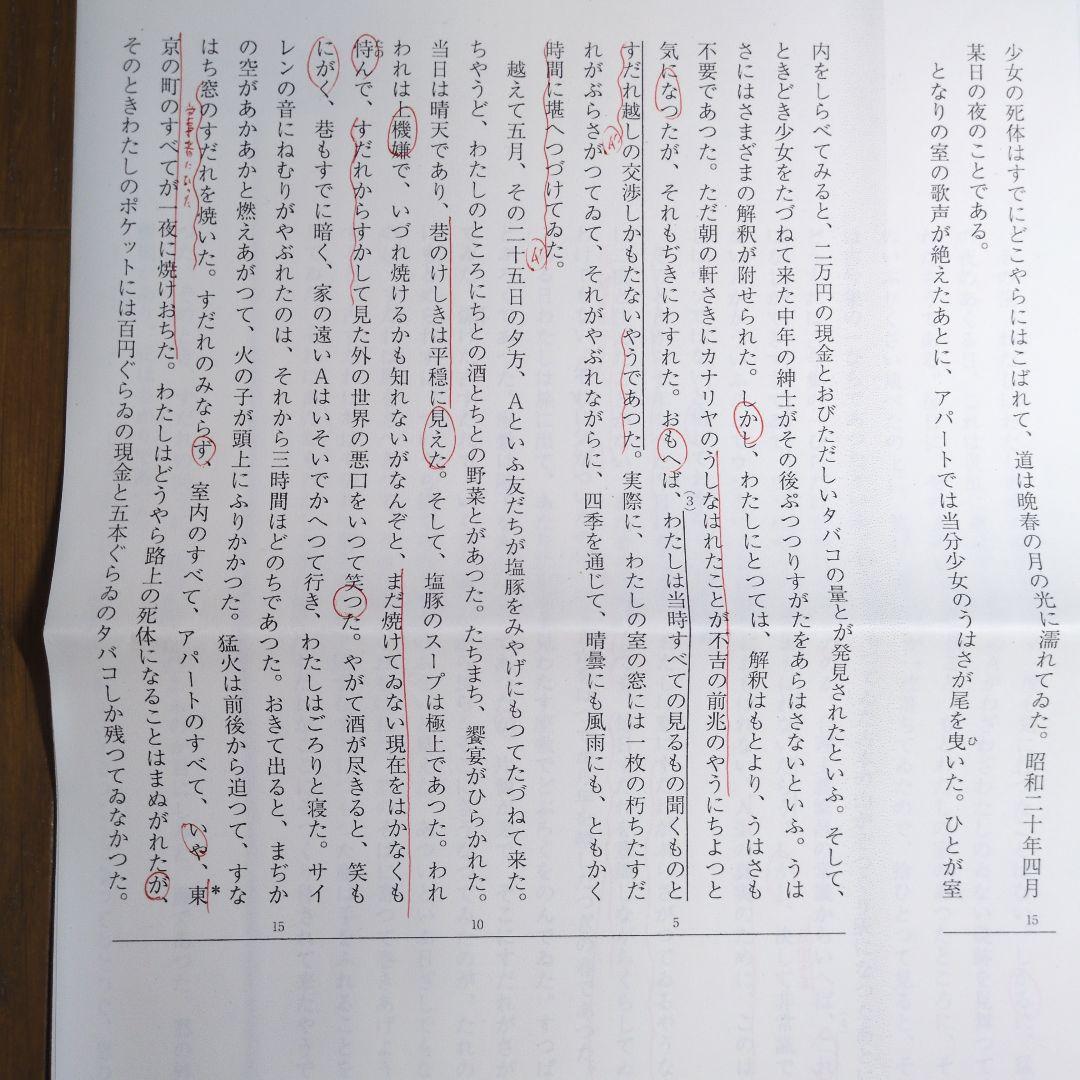 少女の死体はすでにどこやらにはこばれて、道は晩春の月の光に濡れてゐた。昭和二十年四月
15
某日の夜のことである。
となりの室の歌声が絶えたあとに、アパートでは当分少女のうはさが尾を曳いた。ひとが室
ひ
内をしらべてみると、二万円の現金とおびただしいタバコの量とが発見されたといふ。そして、
ときどき少女をたづねて来た中年の紳士がその後ぷつつりすがたをあらはさないといふ。うは
さにはさまざまの解釈が附せられた。しかし、わたしにとつては、解釈はもとより、うはさも
不要であつた。ただ朝の軒さきにカナリヤのうしなはれたことが不吉の前兆のやうにちよつと
気になつたが、それもぢきにわすれた。おもへば、わたしは当時すべての見るもの聞くものと
(3)
5
すだれ越しの交渉しかもたないやうであつた。実際に、わたしの室の窓には一枚の朽ちたすだ
れがぶらさがつてゐて、それがやぶれながらに、四季を通じて、晴曇にも風雨にも、ともかく
時間に堪へつづけてゐた。
越えて五月、その二十五日の夕方、Aといふ友だちが塩豚をみやげにもつてたづねて来た。
ちやうど、わたしのところにちとの酒とちとの野菜とがあつた。たちまち、饗宴がひらかれた。
10
当日は晴天であり、巷のけしきは平穏に見えた。そして、塩豚のスープは極上であつた。われ
われは上機嫌で、いづれ焼けるかも知れないがなんぞと、まだ焼けてゐない現在をはかなくも
恃んで、すだれからすかして見た外の世界の悪口をいつて笑つた。やがて酒が尽きると、笑も
にがく、巷もすでに暗く、家の遠いAはいそいでかへつて行き、わたしはごろりと寝た。サイ
レンの音にねむりがやぶれたのは、それから三時間ほどのちであつた。おきて出ると、まぢか
15
の空があかあかと燃えあがつて、火の子が頭上にふりかかつた。猛火は前後から迫つて、すな
はち窓のすだれを焼いた。すだれのみならず、室内のすべて、アパートのすべて、いや、東
*
京の町のすべてが一夜に焼けおちた。わたしはどうやら路上の死体になることはまぬがれたが、
そのときわたしのポケットには百円ぐらゐの現金と五本ぐらゐのタバコしか残つてゐなかつた。